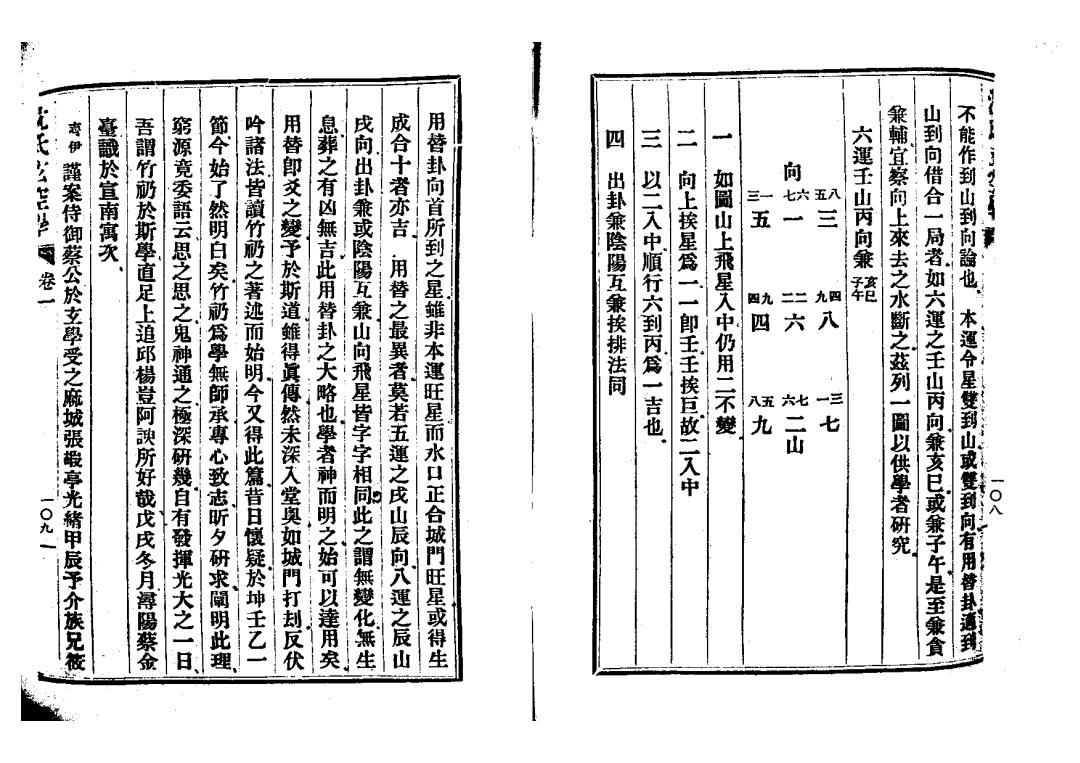 一〇八
不能作到山到向論也、本運令星雙到山或雙到向有用替卦適到
山到向借合一局者如六運之壬山丙向兼亥巳或兼子午是至兼貪
兼輔宜察向上來去之水斷之茲列一圖以供學者研究、
六運壬山丙向兼亥巳子午
八五 三
四九 八
三一 七
向
六七 一
九二 六
七六 二山
三一 五
九四 四
五八 九
一 如圖山上飛星入中仍用二不變
二 向上挨星爲一一卽壬壬挨巨故二入中
三 以二入中順行六到丙爲一吉也、
四 出卦兼陰陽互兼挨排法同
用替卦向首所到之星雖非本運旺星而水口正合城門旺星或得生
成合十者亦吉、用替之最異者莫若五運之戌山辰向八運之辰山
戌向出卦兼或陰陽互兼山向飛星皆字字相同此之謂無變化無生
息葬之有凶無吉此用替卦之大略也學者神而明之始可以達用矣、
用替卽爻之變予於斯道雖得眞傳然未深入堂奥如城門打刦反伏
吟諸法皆讀竹礽之著述而始明今又得此篇昔日懷疑於坤壬乙一
節今始了然明白矣竹礽爲學無師承專心致志昕夕研求闡明此理
窮源竟委語云思之思之鬼神通之極深研幾自有發揮光大之一日、
吾謂竹礽於斯學直足上追邱楊豈阿諛所好哉戊戌冬月潯陽蔡金
臺識於宣南寓次、
謹案侍御蔡公於玄學受之麻城張嘏亭光緒甲辰予介族兄筱
沈氏玄空學 卷一
一〇九